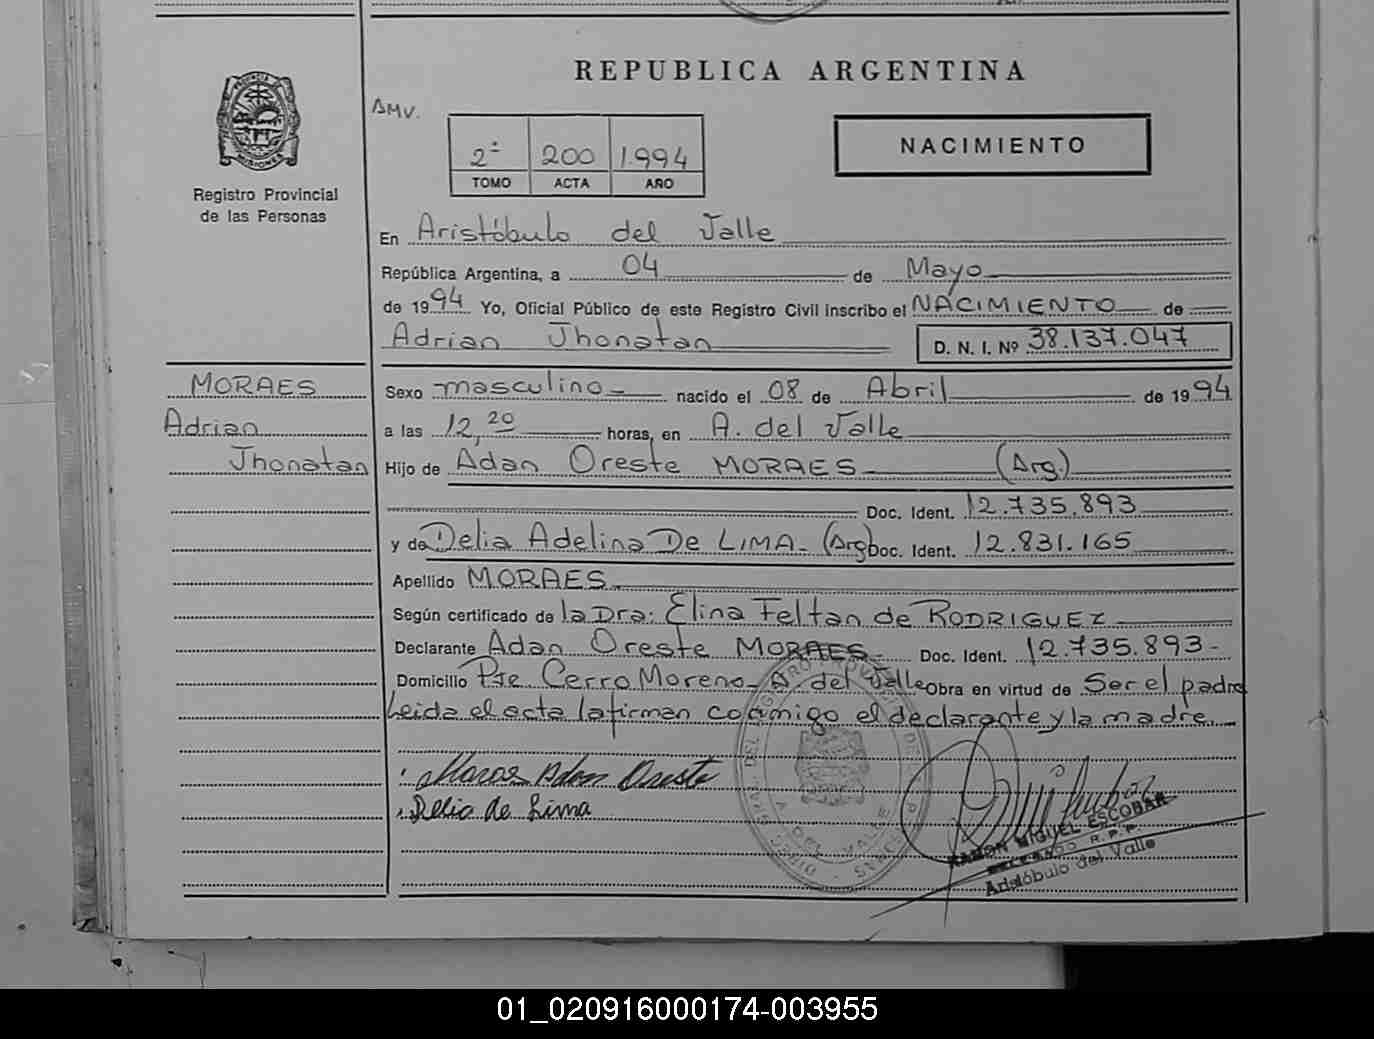 REPUBLICA ARGENTINA
AMV.
PROVINCIA DE
MISIONES
Registro Provincial
de las Personas
2ª 200 1.994
TOMO ACTA AÑO
NACIMIENTO
En Aristóbulo del Valle
República Argentina, a 04 de Mayo
de 1994 Yo, Oficial Público de este Registro Civil inscribo el NACIMIENTO de
Adrian Jhonatan D. N. I. Nº 38.137.047
MORAES
Adrian
Jhonatan
Sexo masculino nacido el 08 de Abril de 1994
a las 12,20 horas, en A. del Valle
Hijo de Adan Oreste MORAES (Arg.)
Doc. Ident. 12.735.893
y de Delia Adelina De LIMA- (Arg) Doc. Ident. 12.831.165
Apellido MORAES
Según certificado de la Dra: Elina Feltan de RODRIGUEZ
Declarante Adan Oreste MORAES- Doc. Ident. 12.735.893-
Domicilio Pje Cerro Moreno- A. del Valle Obra en virtud de Ser el padre
Leida el acta la firman conmigo el declarante y la madre.
Moraes Adan Oreste
Delia de Lima
A. DEL VALLE
RAMON MIGUEL ESCOBAR
DELEGADO R. P. P.
Aristóbulo del Valle
01_020916000174-003955